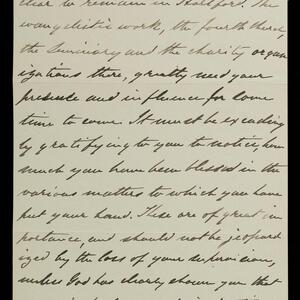 clear to remain in Hartford. The
evangelistic work, the fourth church,
the Seminary and the charity organ
izations there, greatly need your
presence and influence for some
time to come. It must be exceeding
ly gratifying to you to notice, how
much you have been blessed in the
various matters to which you have
put your hand. These are of great im
portance, and should not be jeopard
ized by the loss of your supervision,
unless God has clearly shown you that